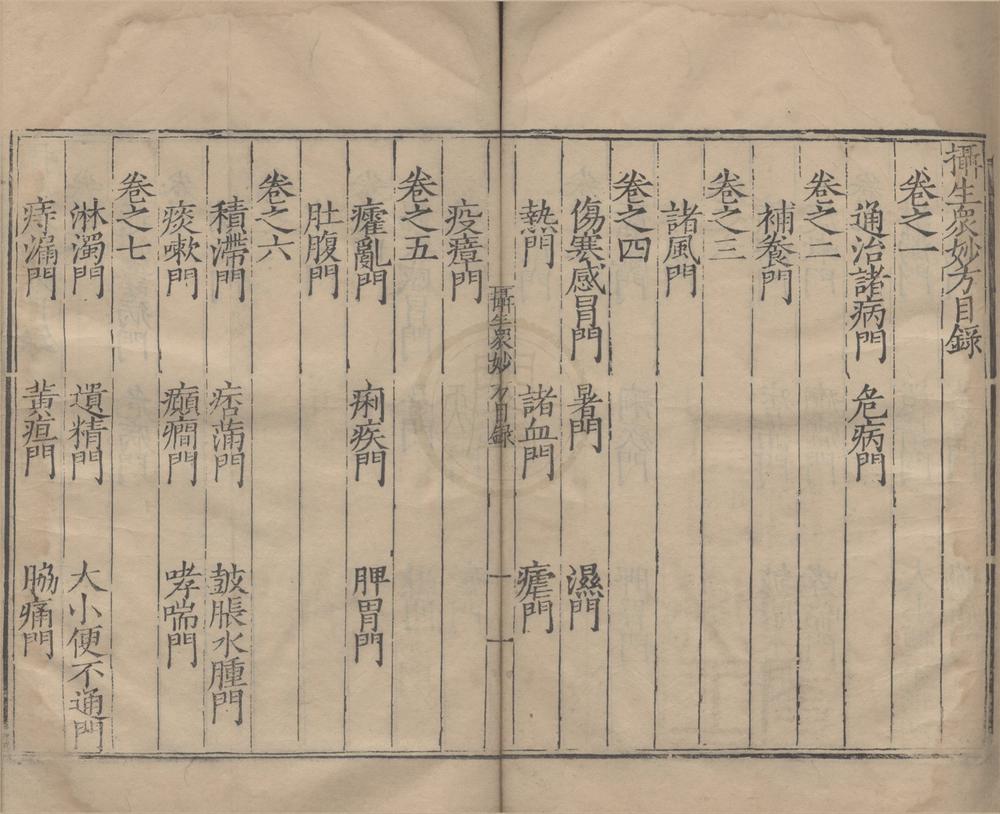 攝生眾妙方目錄
卷之一
通治諸病門 危病門
卷之二
補養門
卷之三
諸風門
卷之四
傷寒感冒門 暑門 濕門
熱門 諸血門 瘧門
攝生眾妙方目錄 一
疫瘴門
卷之五
癨亂門 痢疾門 脾胃門
肚腹門
卷之六
積滯門 痞滿門 皷脹水腫門
痰嗽門 癲癇門 哮喘門
卷之七
淋濁門 遺精門 大小便不通門
痔漏門 黃疸門 脇痛門